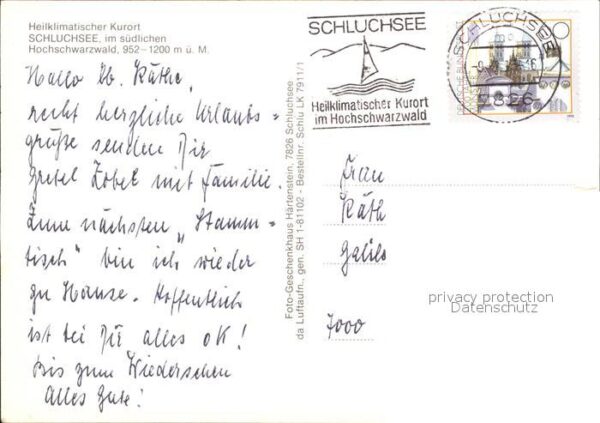 Heilklimatischer Kurort
SCHLUCHSEE, im südlichen
Hochschwarzwald, 952-1200 m ü. M.
Hallo lb. Käthe,
recht herzliche Urlaubs=
grüße senden Dir
Gretel Zobel mit Familie.
Zum nächsten „Stamm=
tisch" bin ich wieder
zu Hause. Hoffentlich
ist bei Dir alles ok!
Bis zum Wiedersehen
Alles Gute!
Foto-Geschenkhaus Härtenstein, 7826 Schluchsee
da Luftaufn., gen. SH 1-81102 - Bestellnr. Schlu LK 7911/1
SCHLUCHSEE
Heilklimatischer Kurort
im Hochschwarzwald
SCHLUCHSEE
7826
Frau
Käth
7000
privacy protection
Datenschutz